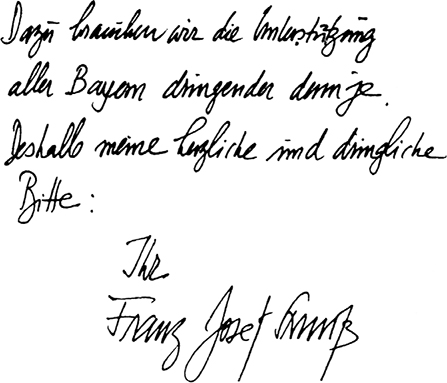 Dazu brauchen wir die Unterstützung
aller Bayern dringender denn je.
Deshalb meine herzliche und dringliche
Bitte:
Ihr
Franz Josef Strauß